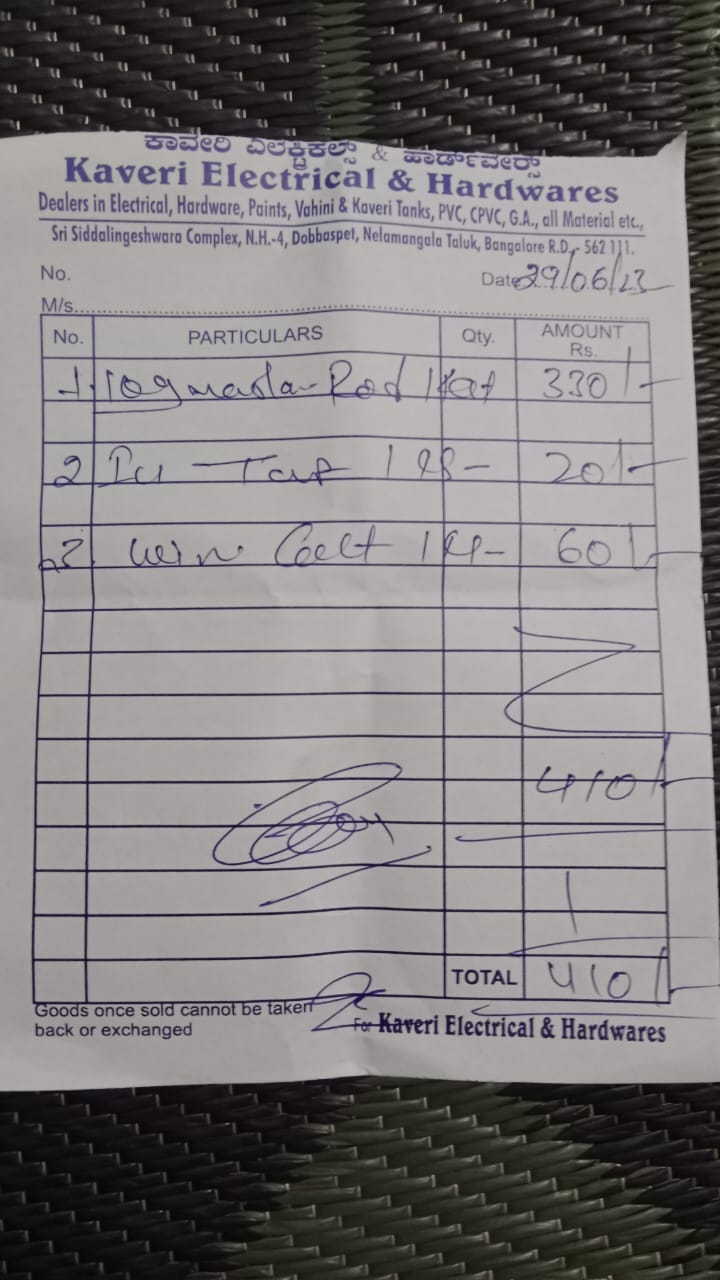 ಕಾವೇರಿ ಎಲೆಕ್ಟ್ರಿಕಲ್ಸ್ & ಹಾರ್ಡ್‌ವೇರ್ಸ್
Kaveri Electrical & Hardwares
Dealers in Electrical, Hardware, Paints, Vahini & Kaveri Tanks, PVC, CPVC, G.A., all Material etc.,
Sri Siddalingeshwara Complex, N.H.-4, Dobbaspet, Nelamangala Taluk, Bangalore R.D.,- 562 111.
No. Date 29/06/23
M/s.
No. PARTICULARS Qty. AMOUNT Rs.
1. Rod 330/-
2 20/-
3. 60/-
410/-
TOTAL 410/-
Goods once sold cannot be taken
back or exchanged
For Kaveri Electrical & Hardwares